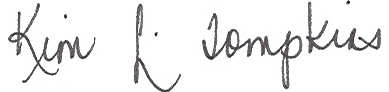 Kim Li Tompkins